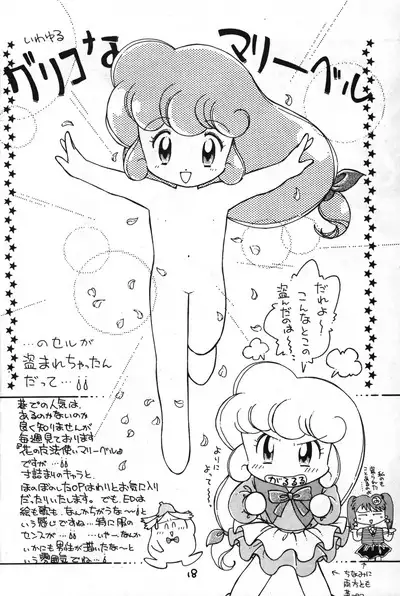 いわゆる
グリコな
マリーベル
だれよ〜
こんなとこの
盗んだのは〜
…のセルが
盗まれちゃったん
だって…
巷での人気は、
あるのかないのか
良く知りませんが
毎週見ております
『花の魔法使いマリーベル』
ですが…
寸詰まりのキャラと
ほのぼのしたOPはわりとお気に入り
だったりいたします。でも、EDは
絵も歌も、なんかちがうな〜と
いう感じですね…特に服の
センスが…じゃーなんか
いかにも男性が描いたな〜と
いう雰囲気ですね…
よりに
よって〜
がるるる
18
ちなみに
両方とも